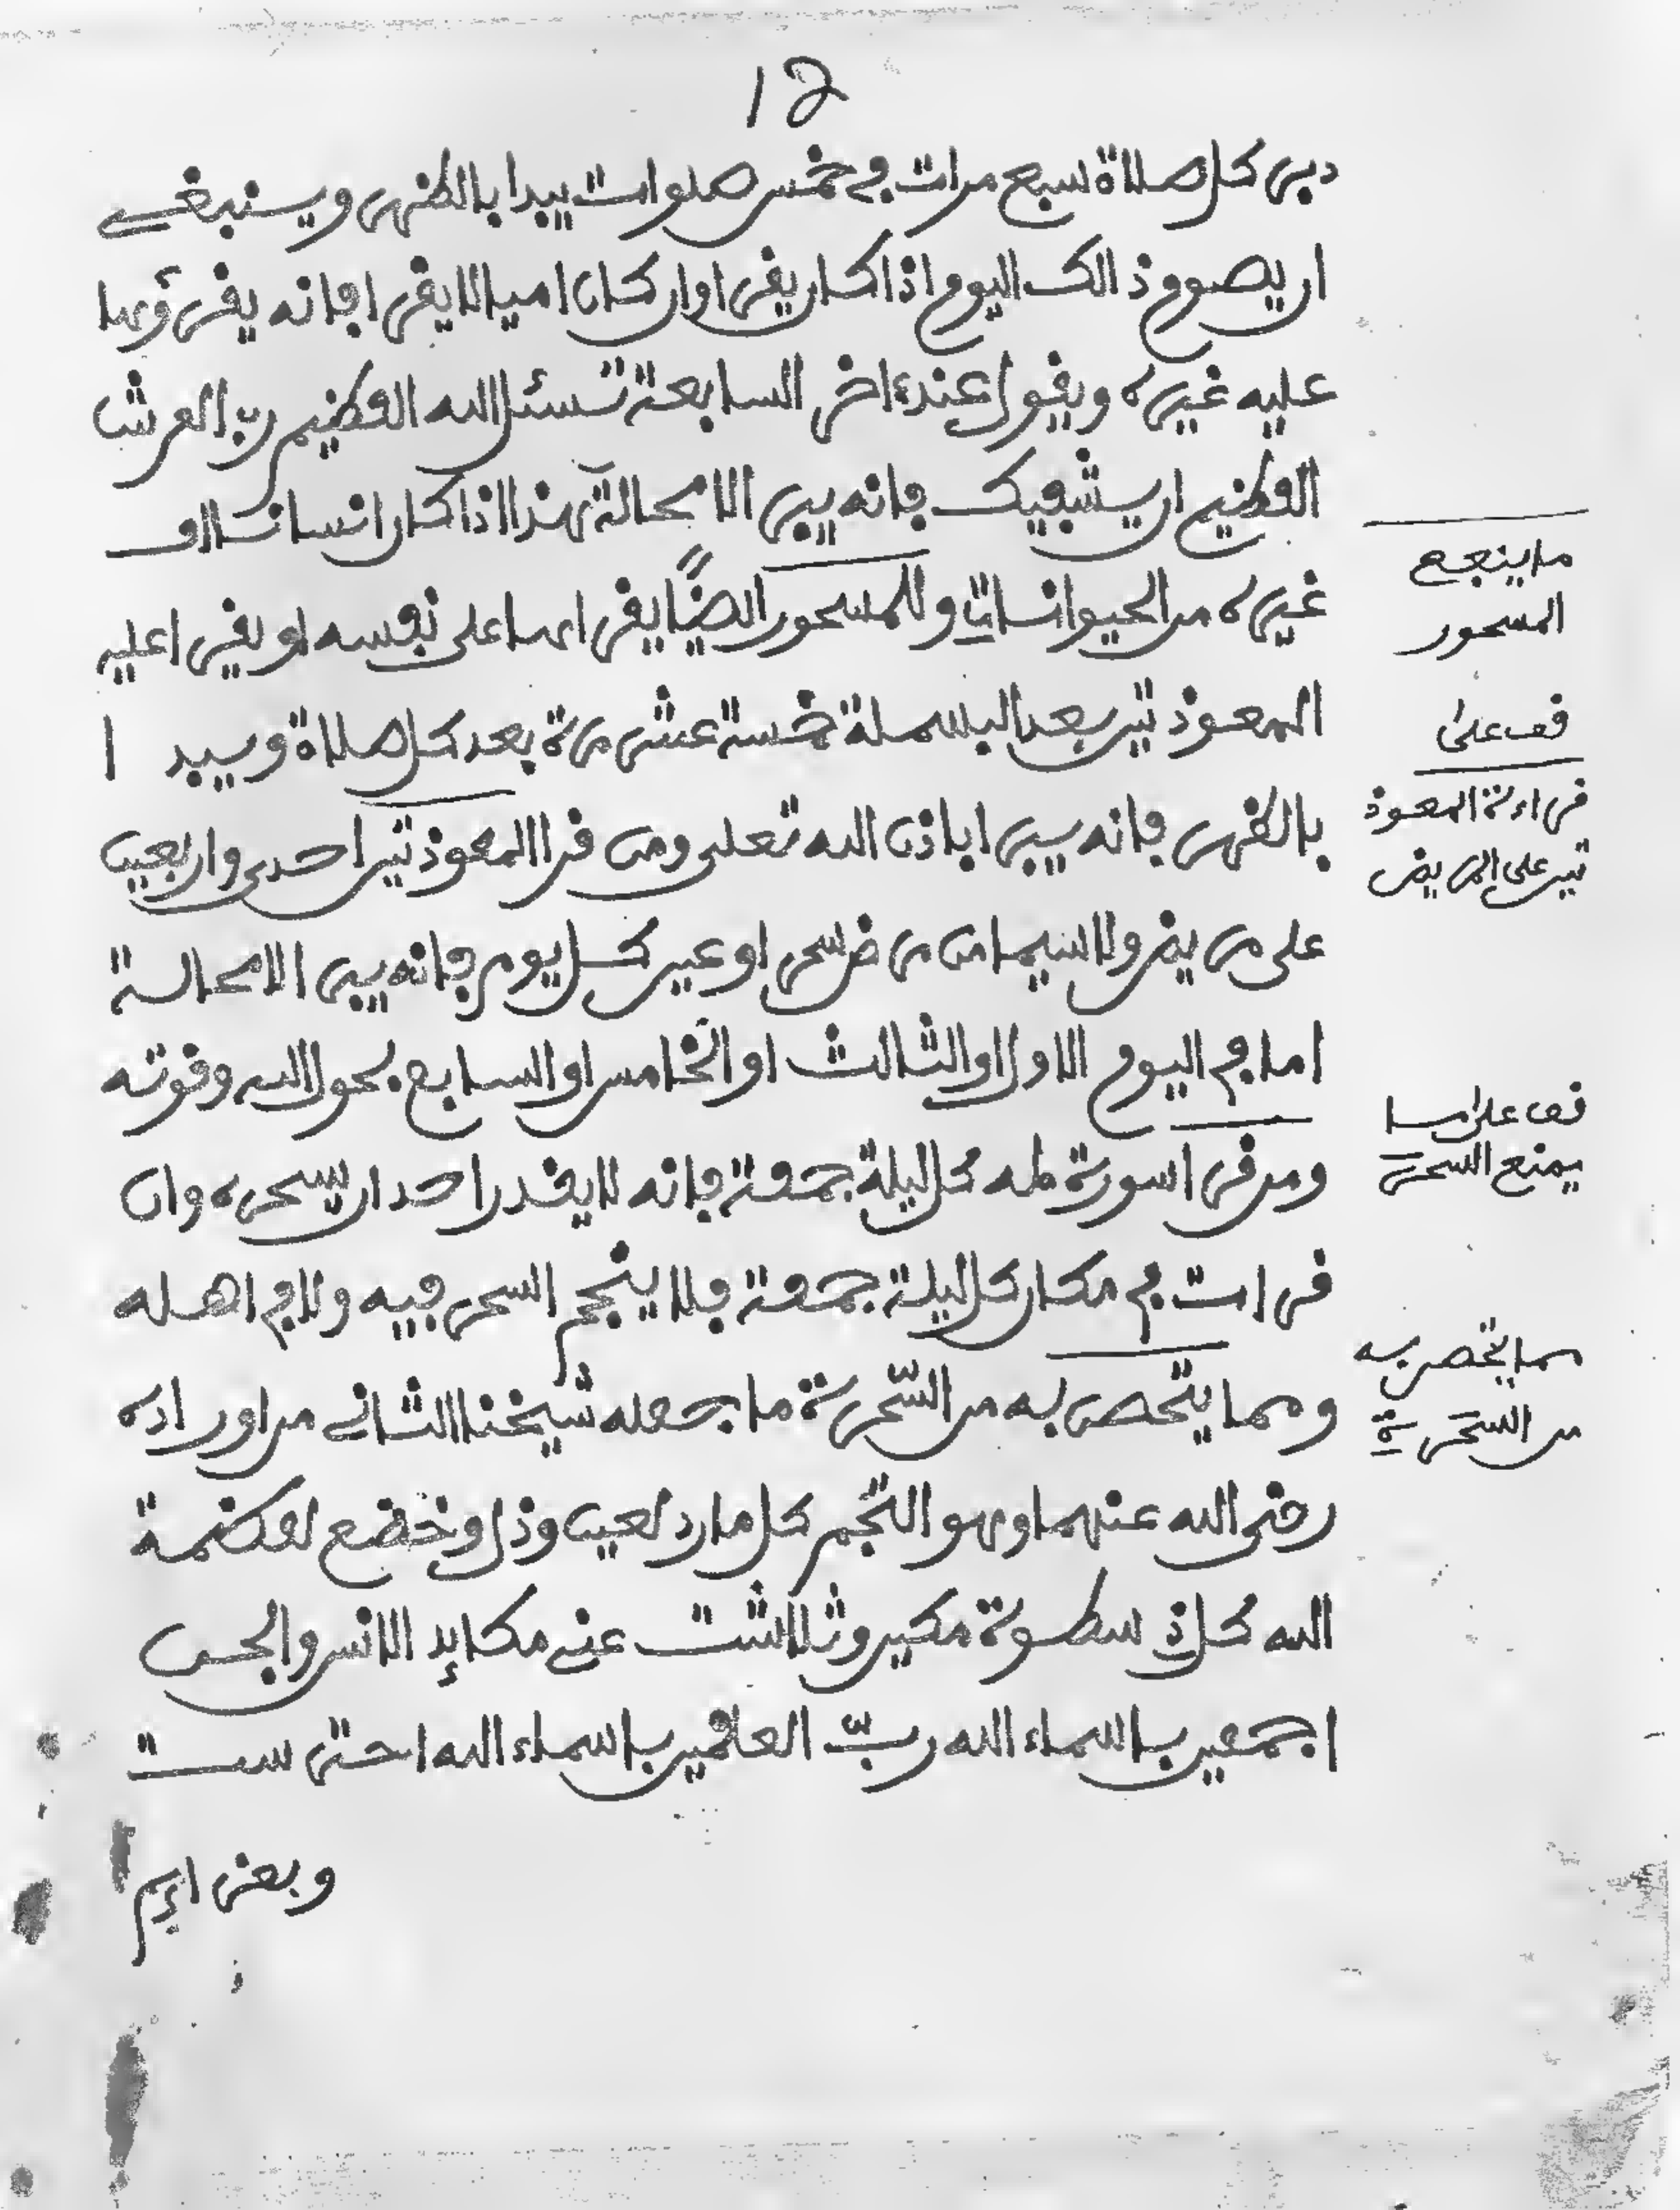 12
دبر كل صلاة سبع مرات في خمس صلوات يبدا بالظهر وينبغي
ان يصوم ذالك اليوم اذا كان يقرا وان كان اميا لا يقرا فانه يقرؤها
عليه غيره ويقول عند ءاخر السابعة تسئل الله العظيم رب العرش
العظيم ان يشفيك فانه يبرا لا محالة هذا اذا كان انسانا او
غيره من الحيوانات وللمسحور ايضًا يقراها على نفسه او يقرا عليه
المعوذتين بعد البسملة خمسة عشر مرة بعد كل صلاة ويبدا
بالظهر فانه يبرا باذن الله تعلى ومن قرا المعوذتين احدى واربعين
على مريض ولا سيما من مرض سحر او عين كل يوم فانه يبرا لا محالة
اما في اليوم الاول او الثالث او الخامس او السابع بحول الله وقوته
ومن قرا سورة طه كل ليلة جمعة فانه لا يقدر احد ان يسحره وان
قرات في مكان كل ليلة جمعة فلا ينجم السحر فيه ولا في اهله
ومما يتحصن به من السّحرة ما جعله شيخنا الثاني من اوراده
رضي الله عنهما وهو التجم كل مارد لعين وذل وخضع لعظمة
الله كل ذي سطوة مكين وتلاشت عني مكايد الانس والجن
اجمعين باسماء الله ربّ العالمين باسماء الله احترست
وبعزايم
ما ينجع
المسحور
قف على
قراءة المعوذ
تين على المريض
قف على ما
يمنع السحرة
مما يتحصن به
من السحرة